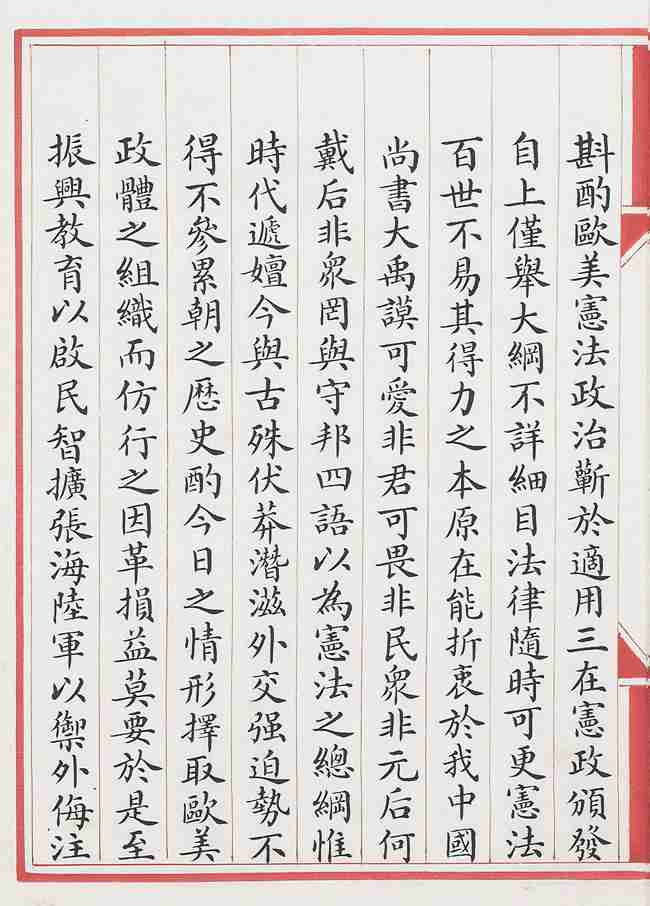 斟酌歐美憲法政治蘄於適用三在憲政頒發
自上僅舉大綱不詳細目法律隨時可更憲法
百世不易其得力之本原在能折衷於我中國
尚書大禹謨可愛非君可畏非民衆非元后何
戴后非衆罔與守邦四語以為憲法之總綱惟
時代遞嬗今與古殊伏莽潛滋外交强迫勢不
得不參累朝之歷史酌今日之情形擇取歐美
政體之組織而仿行之因革損益莫要於是至
振興教育以啟民智擴張海陸軍以禦外侮注